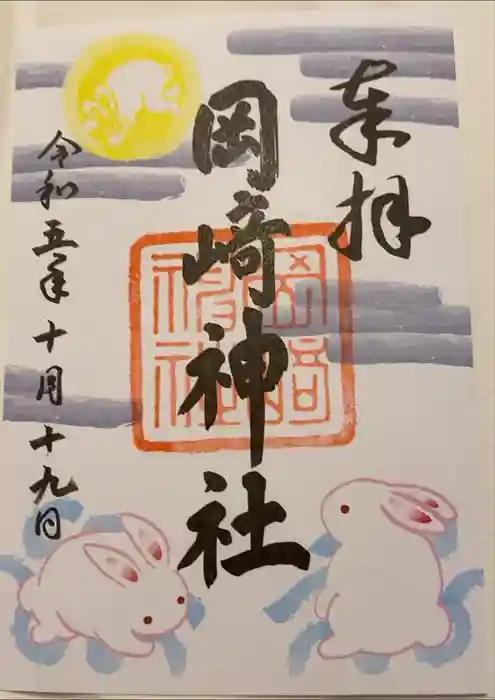 奉拝
岡崎神社
岡崎神社
令和五年十月十九日